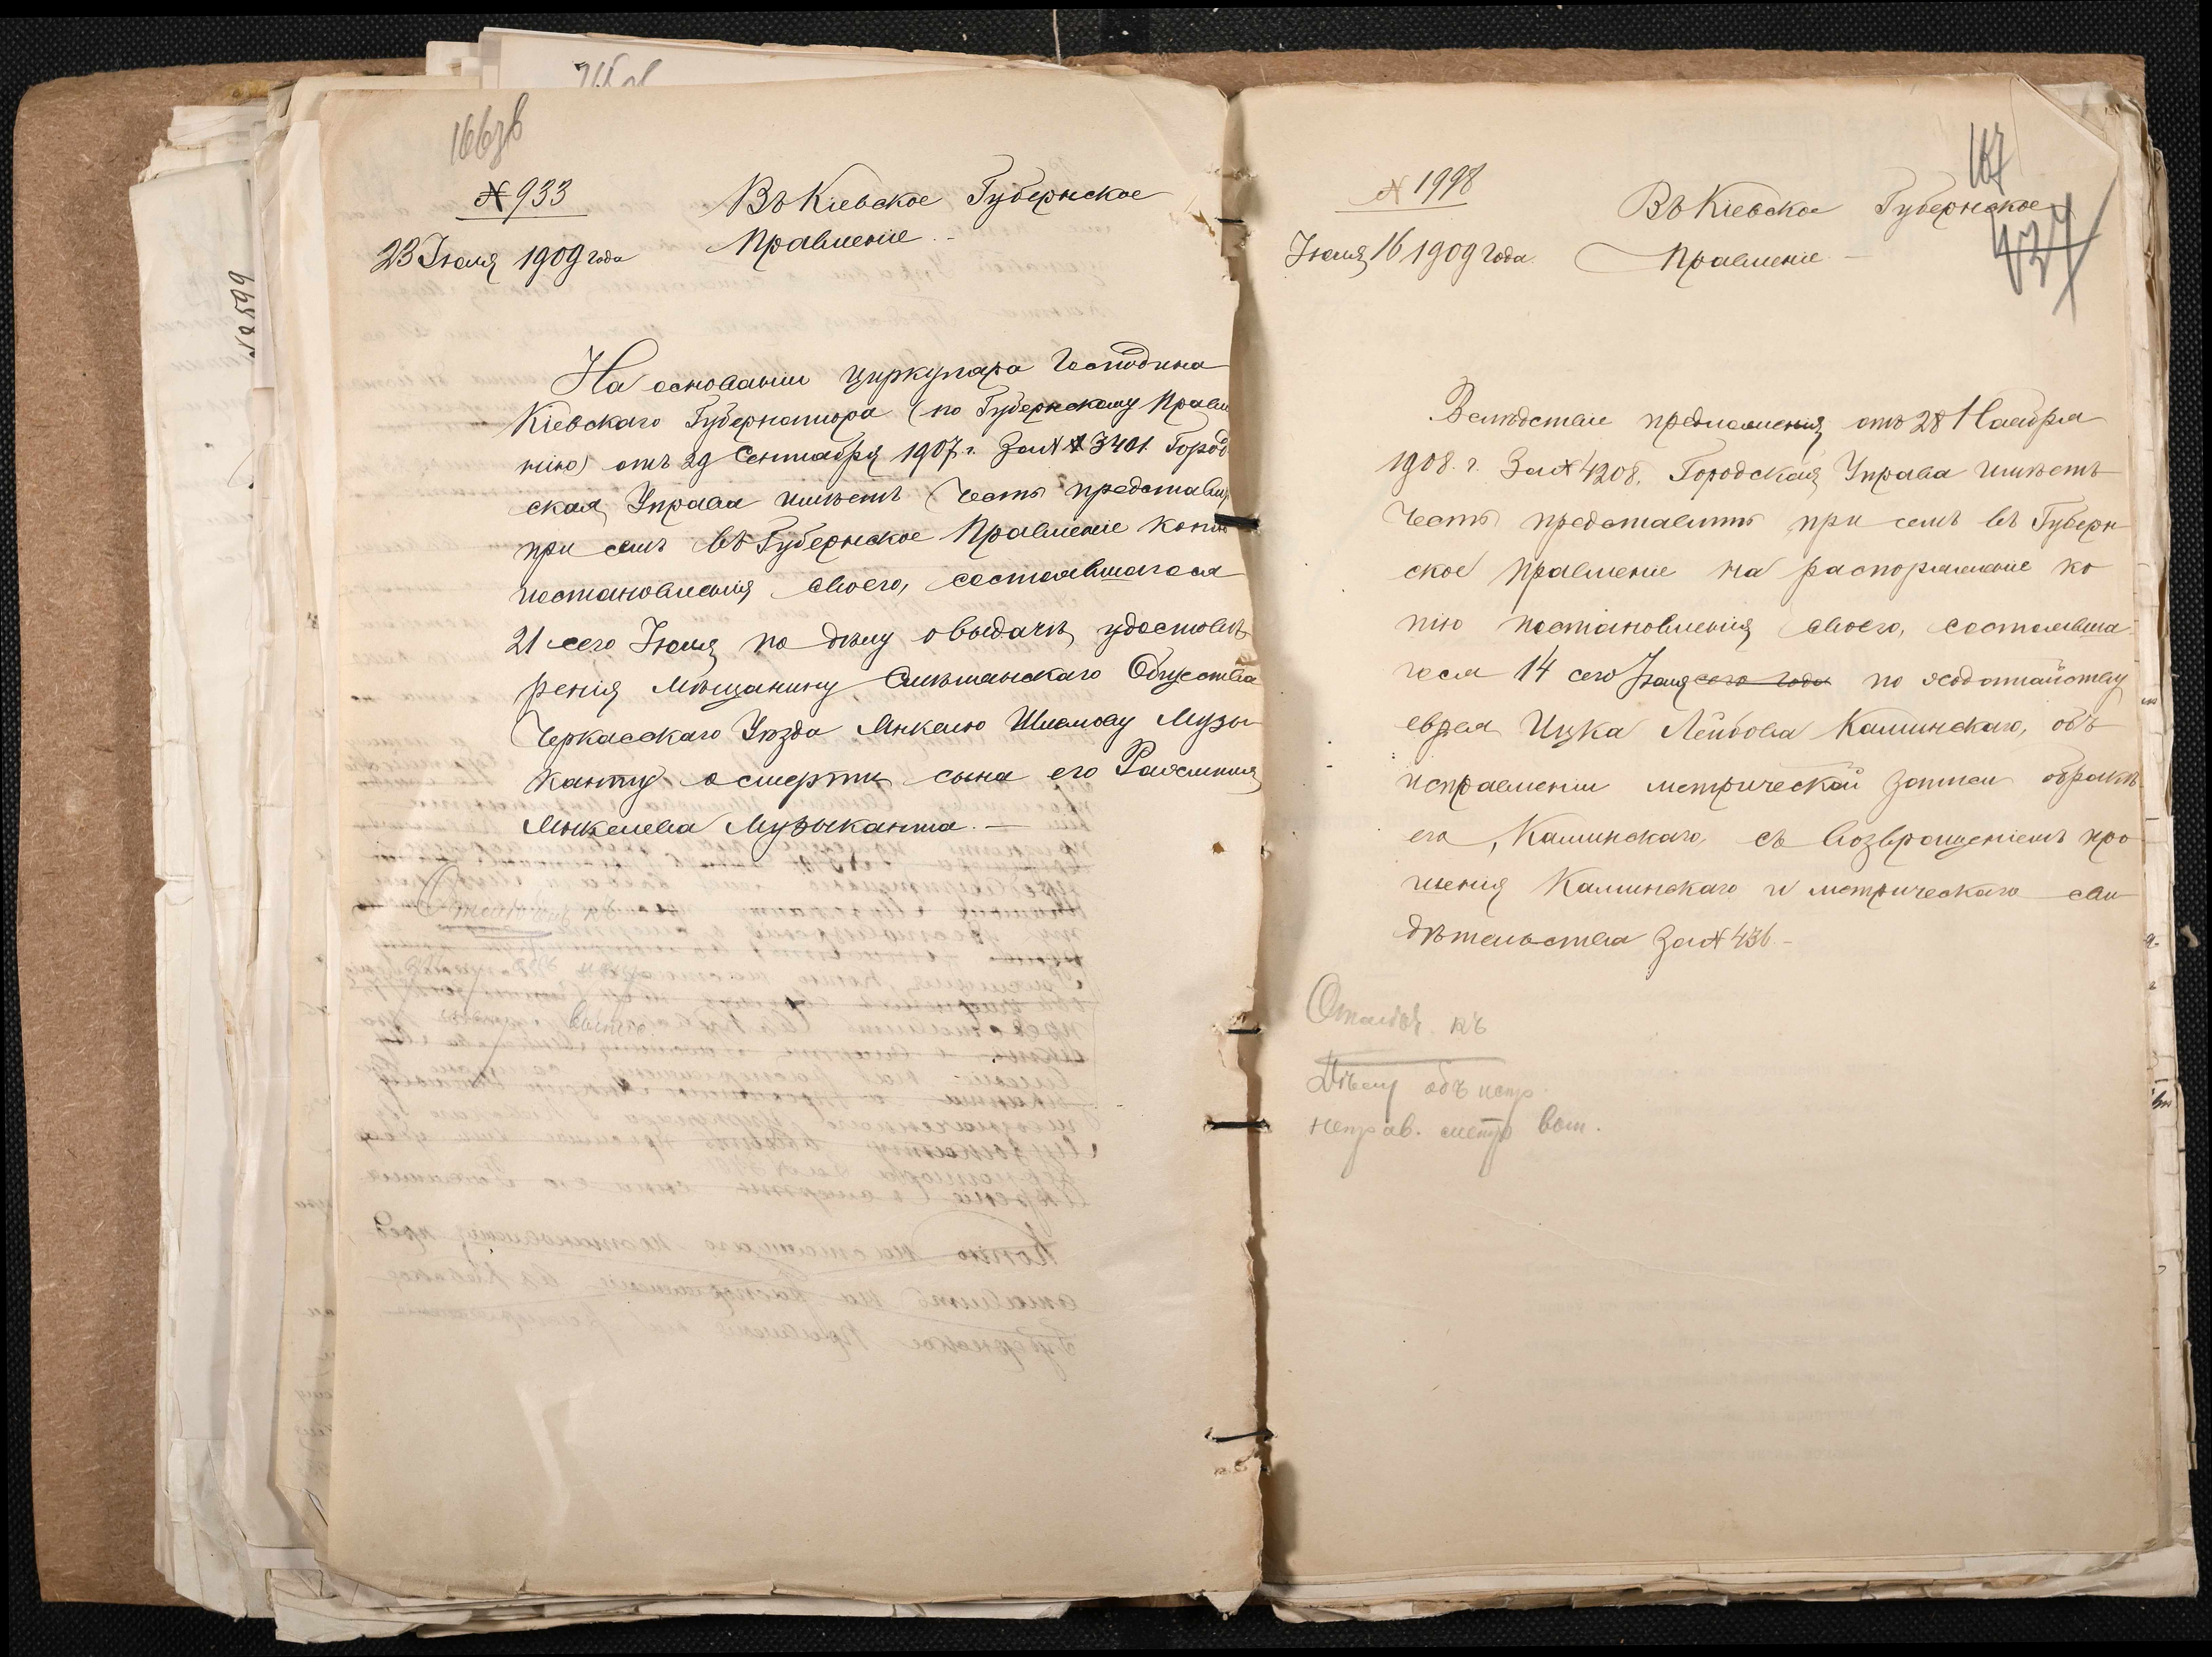 166зв
№ 933
23 Іюля 1909 года
Въ Кіевское Губернское
Правленіе.
На основаніи циркуляра Господина
Кіевскаго Губернатора (по Губернскому Правле
нію) отъ 29 Сентября 1907 г. за № 3401 Город
ская Управа имѣетъ честь представить
при семъ въ Губернское Правленіе копію
постановленія своего, состоявшагося
21 сего Іюля по дѣлу о выдачѣ удостовѣ
ренія мѣщанину Смѣлянскаго Общества
Черкасскаго Уѣзда Янкелю Шлемову Музы
канту о смерти сына его
Янкелева Музыканта.
№ 599
167
427
№ 1998
Іюля 16 1909 года
Въ Кіевское Губернское
Правленіе
Вслѣдствіе предложенія отъ 28 Ноября
1908 г. За № 4208, Городская Управа имѣетъ
честь представить при семъ въ Губерн
ское Правленіе на распоряженіе ко
пію постановленія своего, состоявша
гося 14 сего Іюля сего года по ходатайству
еврея Ицка Лейбова Каминскаго, объ
исправленіи метрической записи о бракѣ
его, Каминскаго, съ возвращеніемъ про
шенія Каминскаго и метрическаго сви
дѣтельства за № 436.
къ
Дѣлу объ испр.